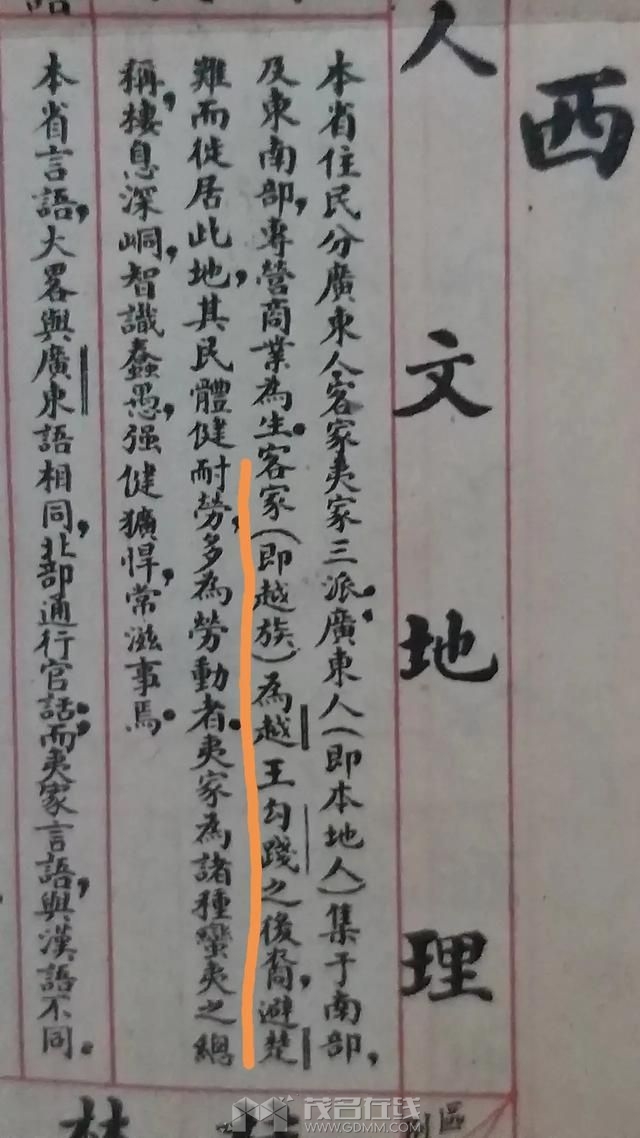 西
人文地理
本省住民分廣東人客家夷家三派。廣東人(即本地人)集于南部,
及東南部,專營商業為生。客家(即越族)為越王勾踐之後裔,避楚
難而徙居此地,其民體健耐勞,多為勞動者。夷家為諸種蠻夷之總
稱,棲息深峒,智識蠢愚,强健獷悍,常滋事焉。
本省言語,大畧與廣東語相同,北部通行官話。而夷家言語,與漢語不同。
語
林
區
茂名在线
WWW.GDMM.COM